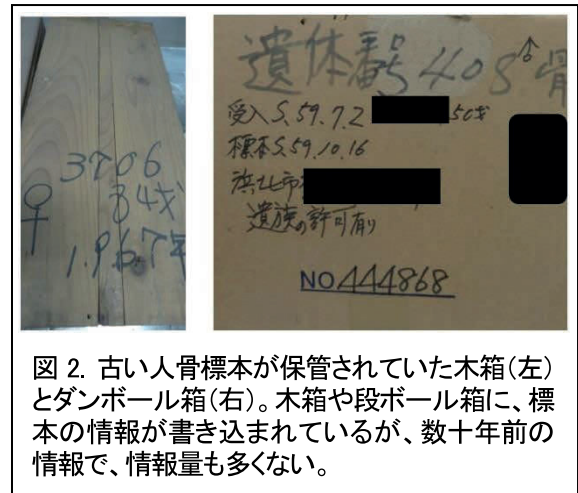 3706
♀ 34才
1967年
遺体番号408 ♂ 骨
受入S.59.7.2 50才
標本S.59.10.16
浜北市
遺族の許可有り
NO444868
図 2. 古い人骨標本が保管されていた木箱(左)
とダンボール箱(右)。木箱や段ボール箱に、標
本の情報が書き込まれているが、数十年前の
情報で、情報量も多くない。